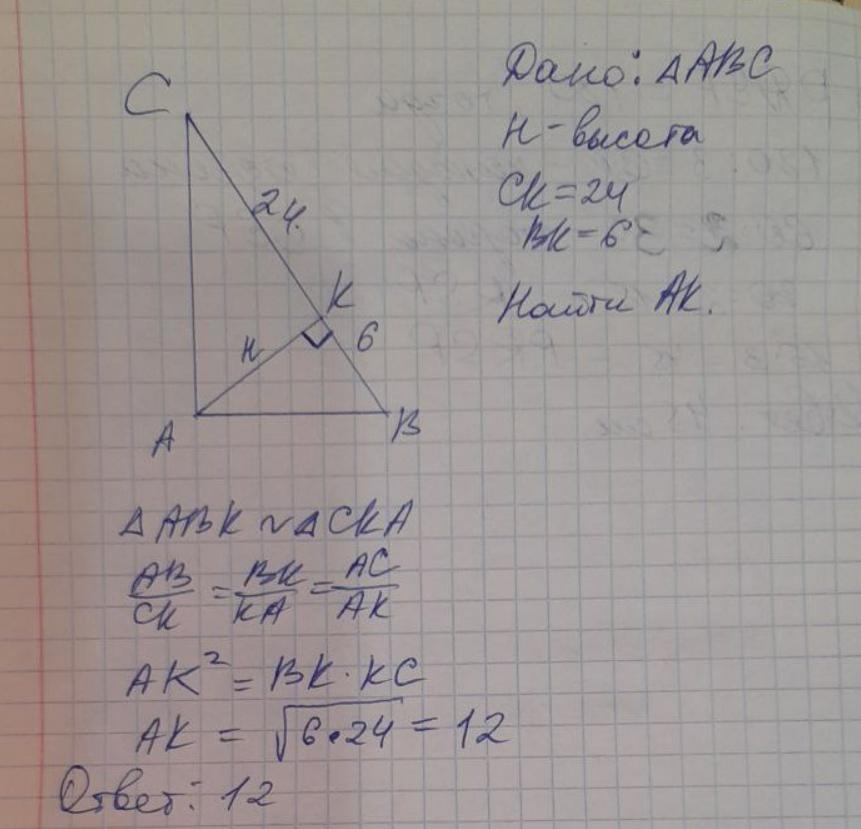 C
Дано: △ABC
H - высота
CK = 24
BK = 6
Найти AK.
24
K
H
6
A
B
△ABK ~ △CKA
AB/CK = BK/KA = AC/AK
AK² = BK · KC
AK = √6·24 = 12
Ответ: 12